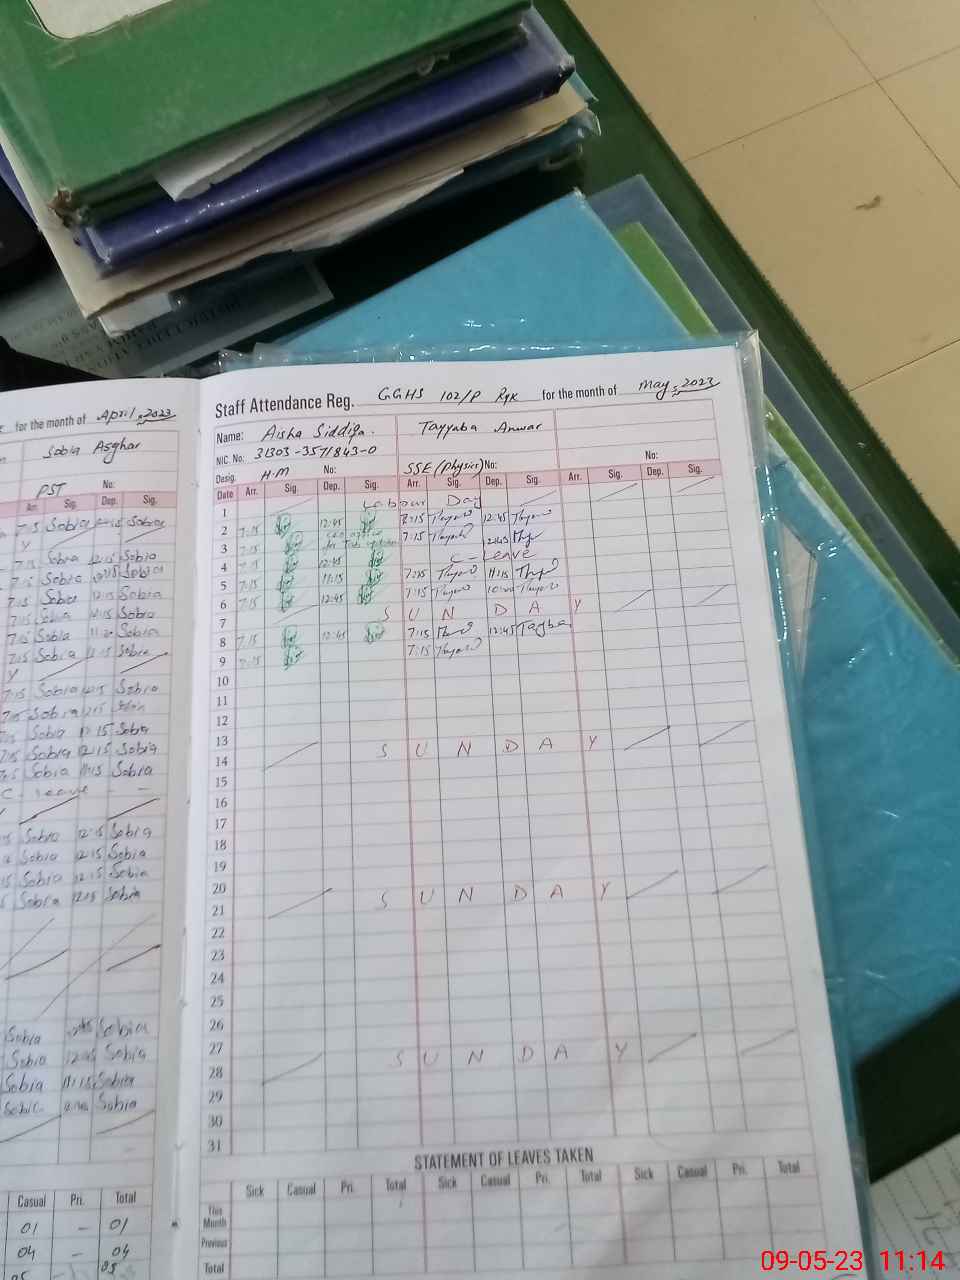 for the month of April, 2023
Sobia Asghar
PST No:
Arr. Sig. Dep. Sig.
7:15 Sobia 12:15 Sobia
Y
7:15 Sobia 12:15 Sobia
7:15 Sobia 12:15 Sobia
7:15 Sobia 12:15 Sobia
7:15 Sobia 12:15 Sobia
7:15 Sobia Sobia
7:15 Sobia Sobia
Y
7:15 Sobia 12:15 Sobia
7:15 Sobia 12:15
Sobia 12:15 Sobia
7:15 Sobia 12:15 Sobia
7:15 Sobia 11:15 Sobia
C - leave - -
Sobia 12:15 Sobia
Sobia 12:15 Sobia
Sobia 12:15 Sobia
Sobia 12:15 Sobia
Sobia Sobia
Sobia 12:45 Sobia
Sobia 11:15 Sobia
Sobia Sobia
Casual Pri. Total
01 - 01
04 - 04
05 05
Staff Attendance Reg. GGHS 102/P RYK for the month of May, 2023
Name: Aisha Siddiqa. Tayyaba Anwar
NIC. No: 31303-3571843-0
Desig. H.M No: SSE (Physics) No: No:
Date Arr. Sig. Dep. Sig. Arr. Sig. Dep. Sig. Arr. Sig. Dep. Sig.
1 Labour Day
2 7:15 12:45 8:15 12:45
3 7:15 7:15 12:45
4 7:15 12:45 C - Leave
5 7:15 11:15 7:15 11:15
6 7:15 12:45 7:15
7 S U N D A Y
8 7:15 12:45 7:15 12:45 Tayba
9 7:15 7:15
10
11
12
13
14 S U N D A Y
15
16
17
18
19
20
21 S U N D A Y
22
23
24
25
26
27
28 S U N D A Y
29
30
31
STATEMENT OF LEAVES TAKEN
Sick Casual Pri. Total Sick Casual Pri. Total Sick Casual Pri. Total
This Month
Previous
Total
09-05-23 11:14